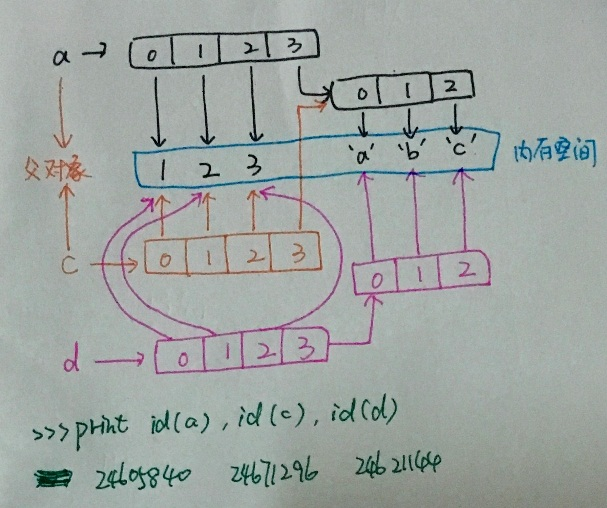 a → 0 1 2 3
0 1 2
1 2 3 'a' 'b' 'c' 内存空间
父对象
c 0 1 2 3
0 1 2
d → 0 1 2 3
>>>print id(a), id(c), id(d)
24605840 24671296 24621144